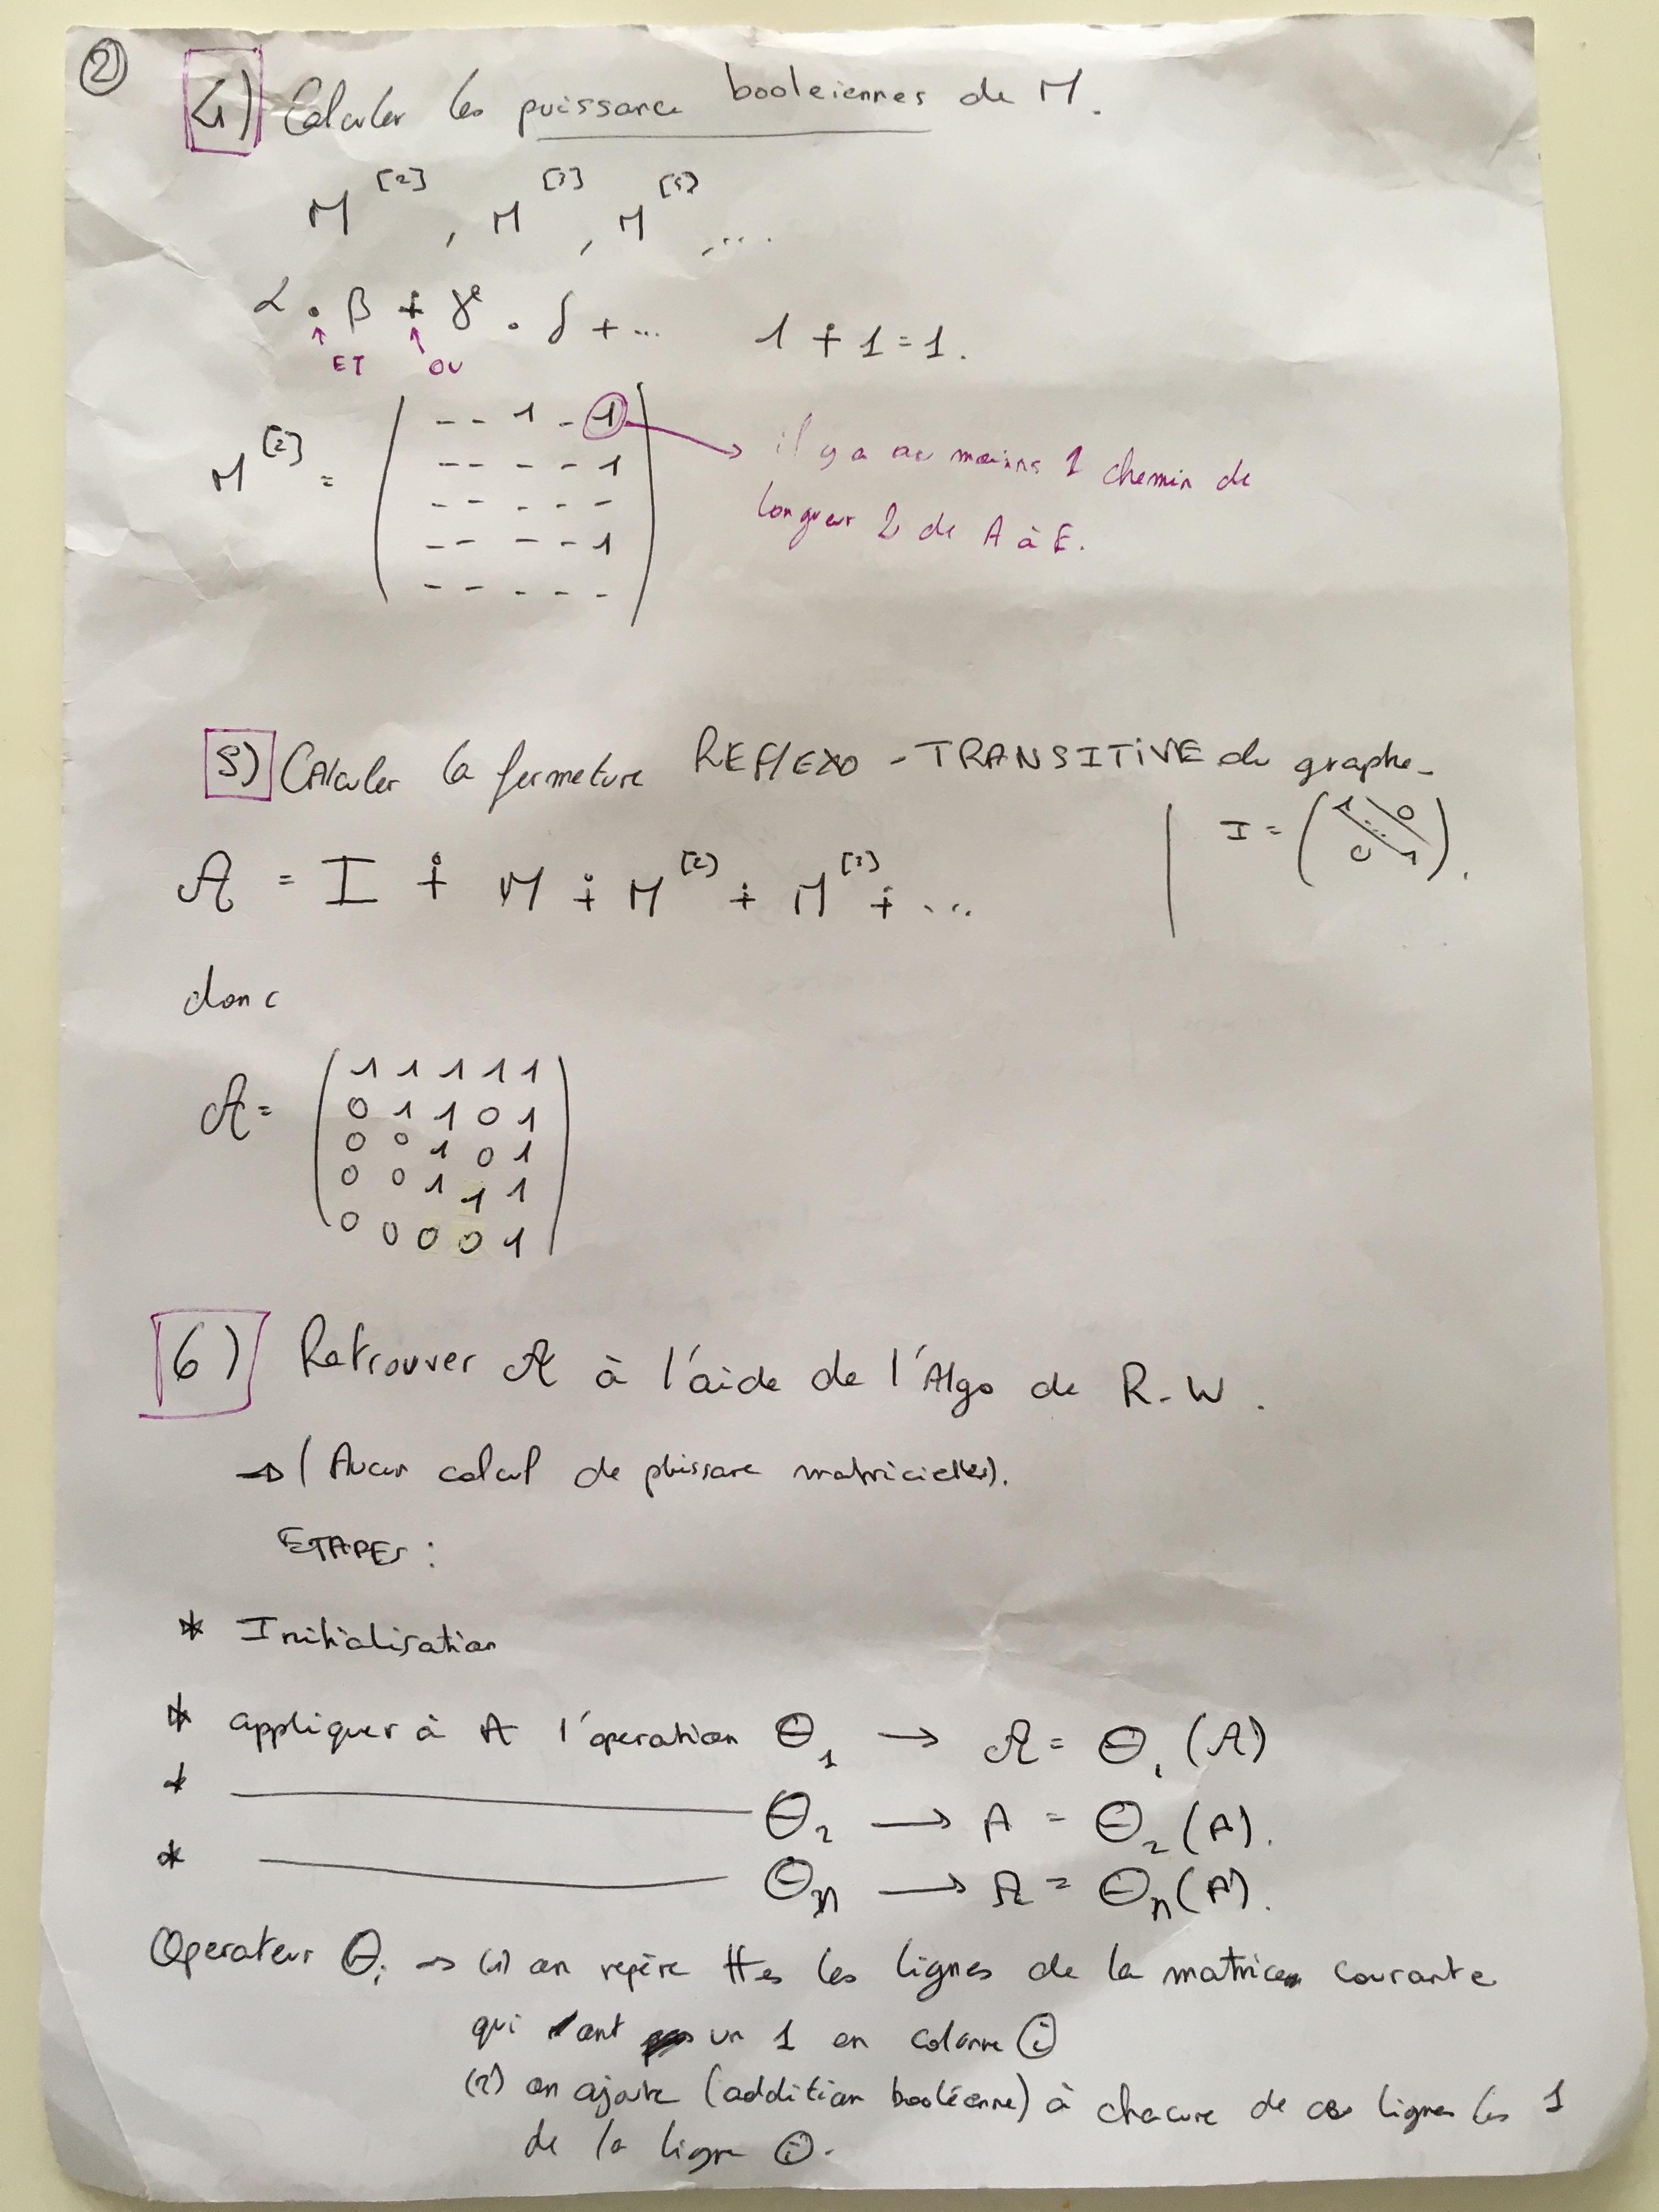 ②
4) Calculer les puissance booleiennes de M.
M[2], M[3], M[4], ...
α . β + γ . δ + ... 1 + 1 = 1.
ET OU
M[2] =
- - 1 - 1
- - - - 1
- - - - -
- - - - 1
- - - - -
il y a au moins 1 chemin de
longueur 2 de A à E.
5) CAlculer la fermeture REFLEXO - TRANSITIVE du graphe.
I = ( 1 0 0 1 ).
A = I + M + M[2] + M[3] + ...
donc
A =
1 1 1 1 1
0 1 1 0 1
0 0 1 0 1
0 0 1 1 1
0 0 0 0 1
6) Retrouver A à l'aide de l'Algo de R-W.
→ (Aucun calcul de puissance matricielles).
ETAPES :
* Initialisation
* appliquer à A l'operation Θ1 → A = Θ1 (A)
* ———— Θ2 → A = Θ2 (A).
* ———— Θn → A = Θn (A).
Operateur Θi → (1) on repère ttes les lignes de la matrice courante
qui ont un 1 en colonne ⓘ
(2) on ajoute (addition booléenne) à chacune de ces lignes les 1
de la ligne ⓘ.